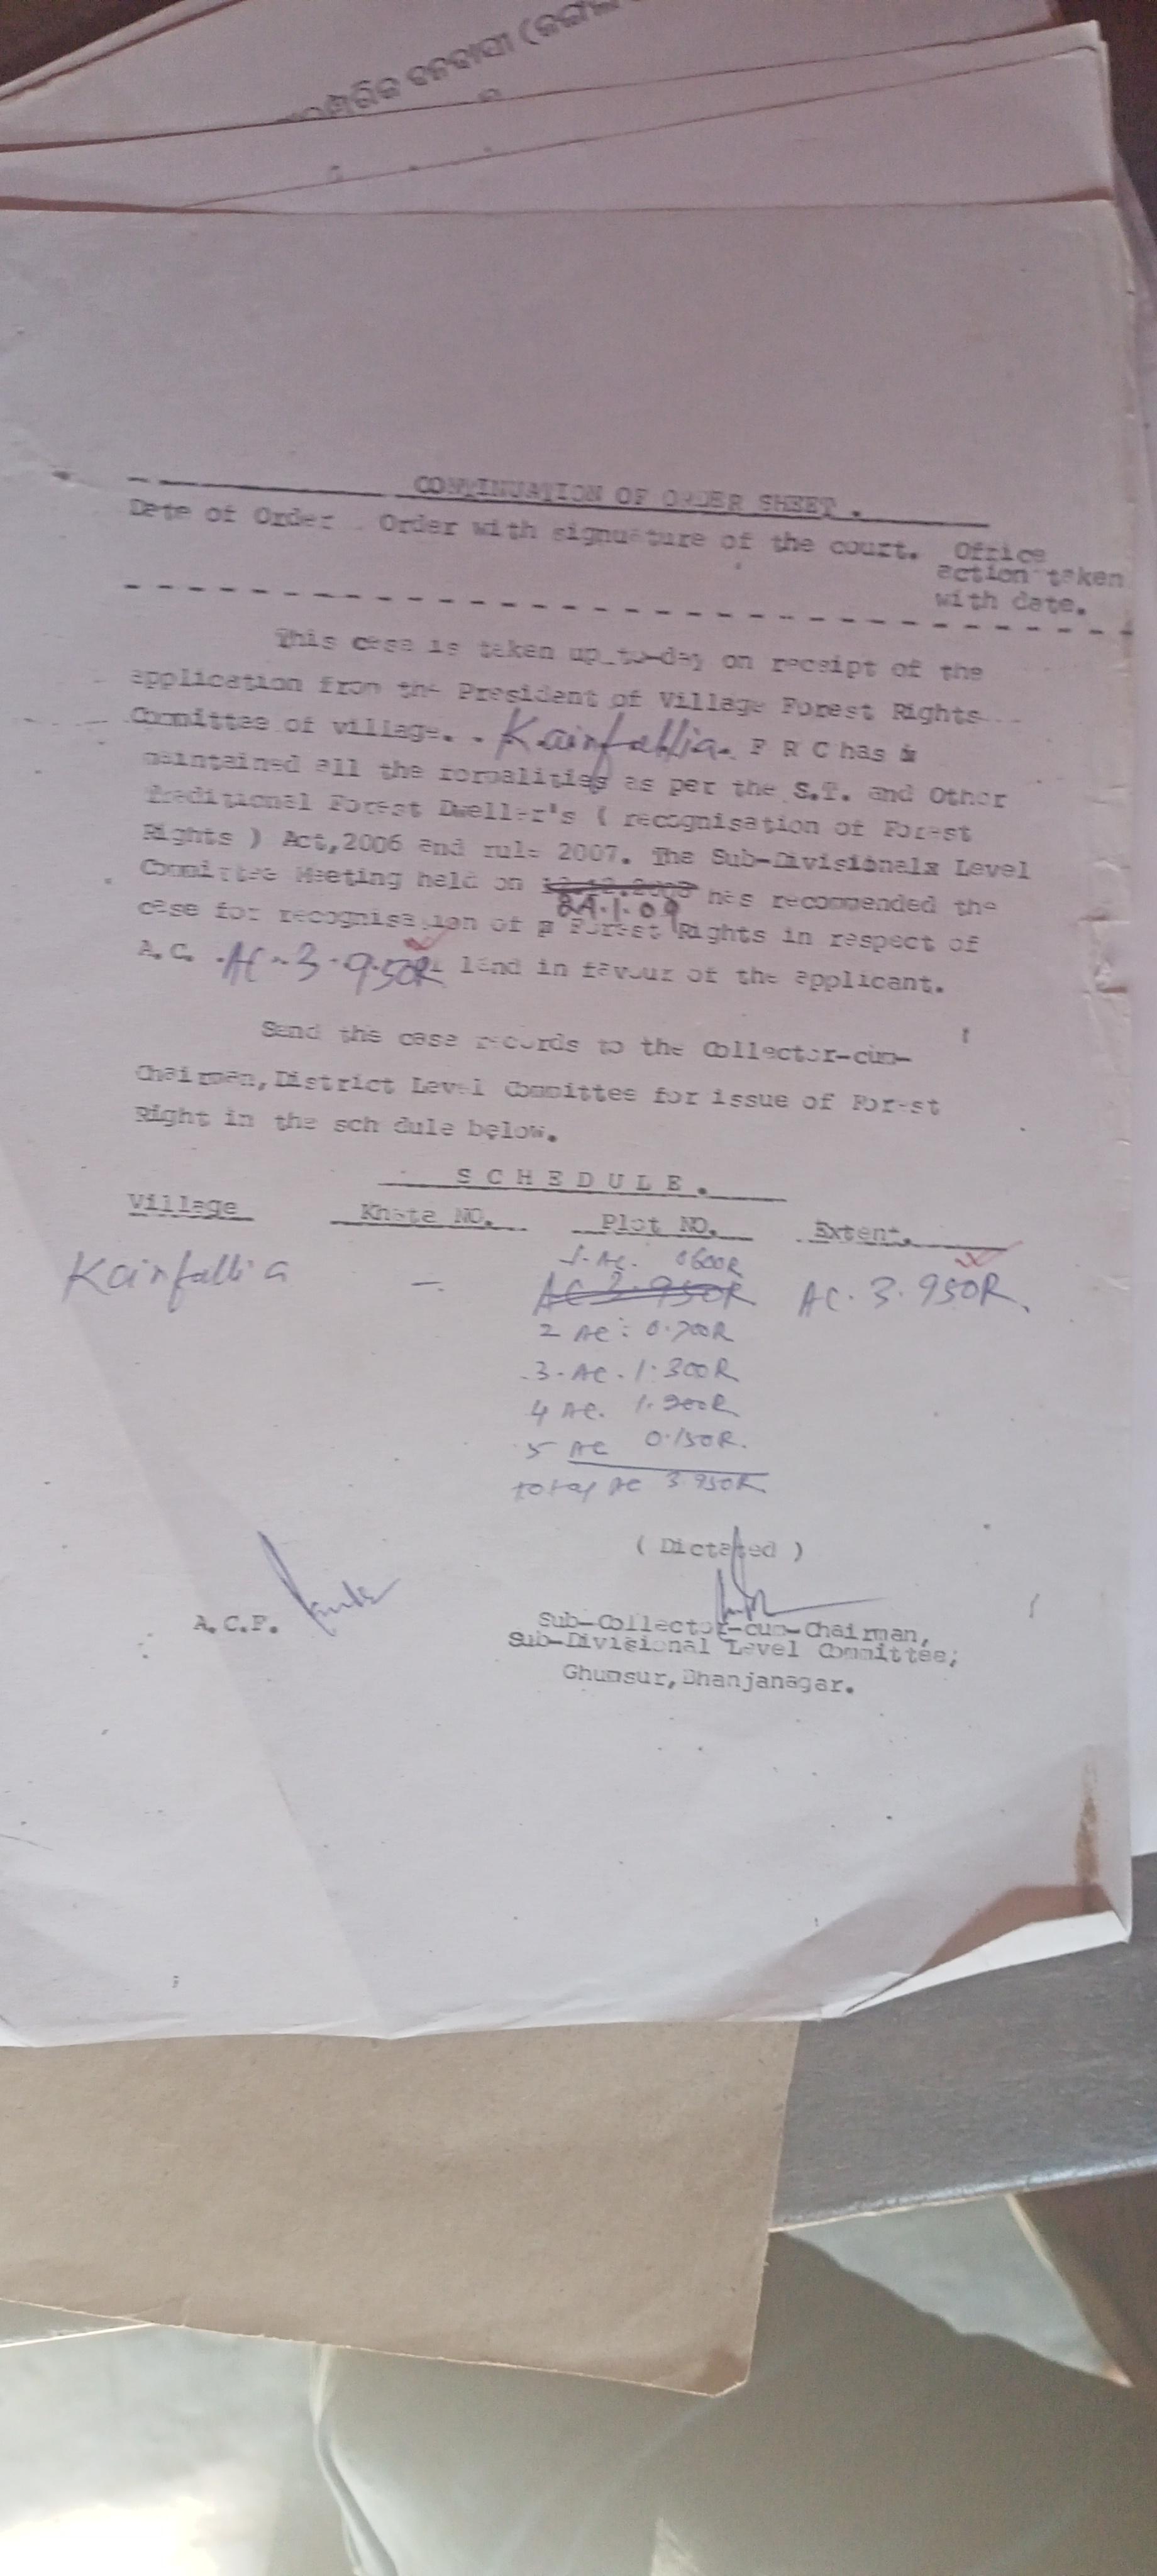 ବନବାସୀ
CONTINUATION OF ORDER SHEET.
Date of Order Order with signuature of the court. Office
action taken
with date.
This case is taken up to-day on receipt of the
application from the President of Village Forest Rights
Committee of village.. Kainfallia. F R C has &
maintained all the formalities as per the S.T. and Other
Traditional Forest Dweller's ( recognisation of Forest
Rights ) Act,2006 and rule 2007. The Sub-Divisionalx Level
Committee Meeting held on has recommended the
.1.09
case for recognisation of Forest Rights in respect of
A.C. AC-3-9.50R land in favour of the applicant.
Send the case records to the Collector-cum-
Chairman,District Level Committee for issue of Forest
Right in the sch dule below.
SCHEDULE.
Village Khata NO. Plot NO. Extent.
1. AC. 0600R
Kainfallia - AC 3.950R AC. 3.950R.
2 AC: 0.700R
3. AC. 1.300R
4 AC. R
5 AC 0.150R.
total AC 3.950R
( Dictated )
A.C.F.
Sub-Collector-cum-Chairman,
Sub-Divisional Level Committee;
Ghumsur,Bhanjanagar.